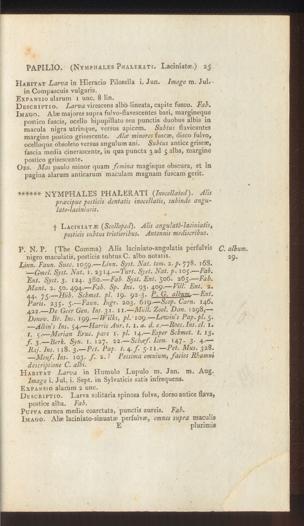 PAPILIO. (NYMPHALES PHALERATI. Laciniatæ.) 25
HABITAT Larva in Hieracio Pilosella i. Jun. Imago m. Jul.
in Compascuis vulgaris.
EXPANSIO alarum 1 unc. 8 lin.
DESCRIPTIO. Larva virescens albo lineata, capite fusco. Fab.
IMAGO. Alæ majores supra fulvo-flavescentes basi, margineque
postico fascis, ocello bipupillato seu punctis duobus albis in
macula nigra utrinque, versus apicem. Subtus flavicantes
margine postico grisescente. Alæ minores fuscæ, disco fulvo,
ocelloque obsoleto versus angulum ani. Subtus antice griseæ,
fascia media cinerascente, in qua puncta 3 ad 5 alba, margine
postico grisescente.
OBS. Mas paulo minor quam femina magisque obscura, et in
pagina alarum anticarum maculam magnam fuscam gerit.
****** NYMPHALES PHALERATI (Inocellated). Alis
præcipue posticis dentatis inocellatis, subinde angu-
lato-laciniatis.
† LACINIATÆ (Scolloped). Alis angulato-laciniatis,
posticis subtus tristioribus. Antennis mediocribus.
P. N. P. (The Comma) Alis laciniato-angulatis perfulvis C. album.
nigro maculatis, posticis subtus C. albo notatis. 29.
Linn. Faun. Suec. 1059.—Linn. Syst. Nat. tom. 2. p. 778. 168.
—Gmel. Syst. Nat. 1. 2314.—Turt. Syst. Nat. p. 105.—Fab.
Ent. Syst. 3. 124. 380.—Fab. Syst. Ent. 506. 265.—Fab.
Mant. 2. 50. 494.—Fab. Sp. Ins. 93. 409.—Vill. Ent. 2.
44. 75.—Hüb. Schmet. pl. 19. 92-3. P. G. album.—Ent.
Paris. 235. 5.—Faun. Ingr. 203. 619.—Scop. Carn. 146.
422.—De Geer Gen. Ins. 31. 11.—Mill. Zool. Dan. 1298.—
Donov. Br. Ins. 199.—Wilks. pl. 109.—Lewin's Pap. pl. 5.
—Albin's Ins. 54.—Harris Aur. t. 1. a. d. e.—Roes. Ins. cl. 1.
t. 5.—Merian Eur. pars 1. pl. 14.—Esper Schmet. t. 13.
f. 3.—Berk. Syn. 1. 127. 22.—Schæf. Icon. 147. 3. 4.—
Raj. Ins. 118. 3.—Pet. Pap. t. 4. f. 5-11.—Pet. Mus. 328.
—Mouf. Ins. 103. f. 2.? Pessima omnium, facies Rhamni
descriptione C. albi.
HABITAT Larva in Humulo Lupulo m. Jan. m. Aug.
Imago i. Jul. i. Sept. in Sylvaticis satis infrequens.
EXPANSIO alarum 2 unc.
DESCRIPTIO. Larva solitaria spinosa fulva, dorso antice flava,
postice alba. Fab.
PUPPA carnea medio coarctata, punctis aureis. Fab.
IMAGO. Alæ laciniato-sinuatæ perfulvæ, omnes supra maculis
E plurimis